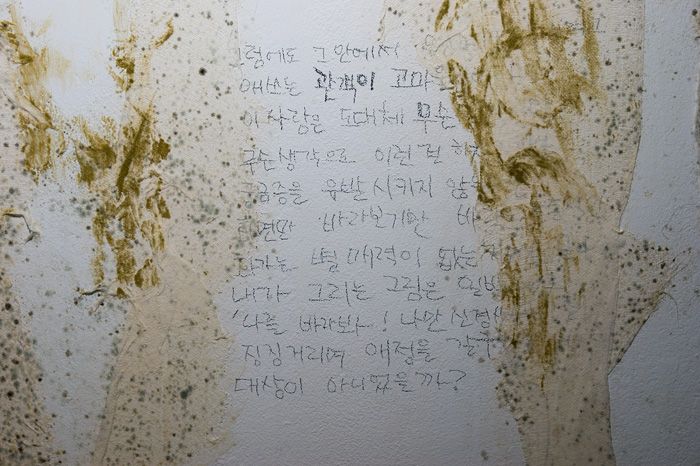 그럼에도 그 안에서
애쓰는 관객이 고마울
이 사람은 도대체 무슨
무슨 생각으로 이런 걸 하
궁금증을 유발시키지 않
바라보기만 바
는 별 매력이 없는
내가 그리는 그림은 일방
'나를 바라봐! 나만 신경
징징거리며 애정을 갈구
대상이 아니었을까?